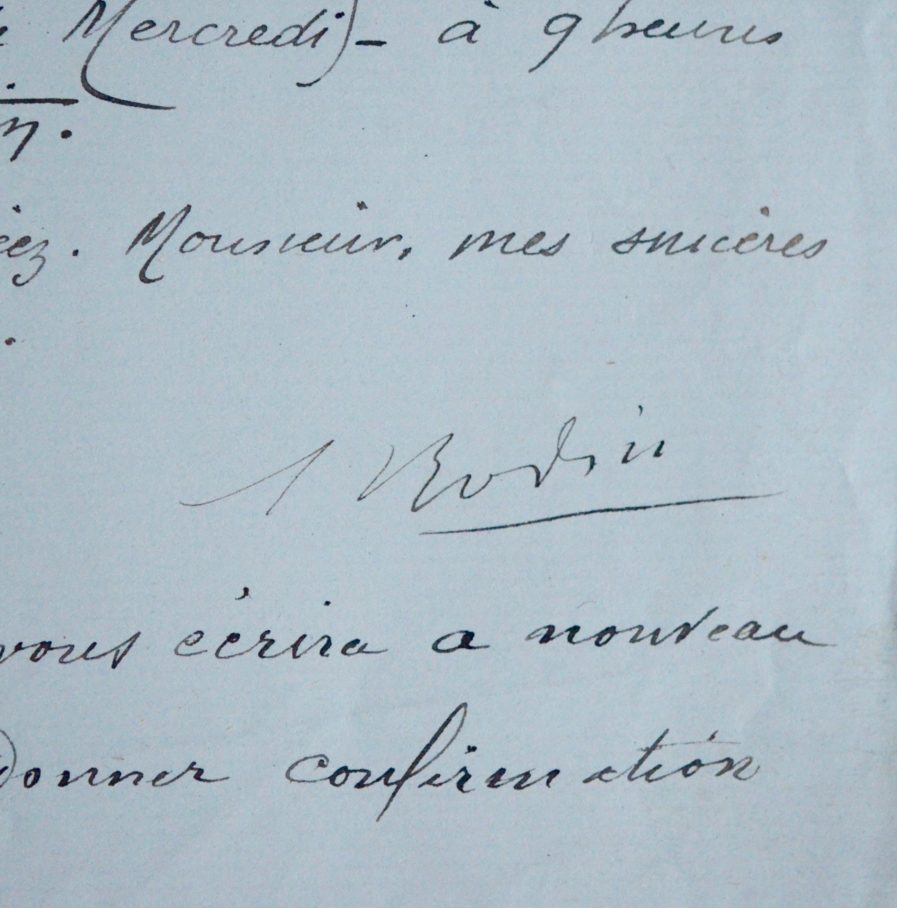 Mercredi) - à 9 heures
Monsieur, mes sincères
A Rodin
vous écrira a nouveau
donner confirmation